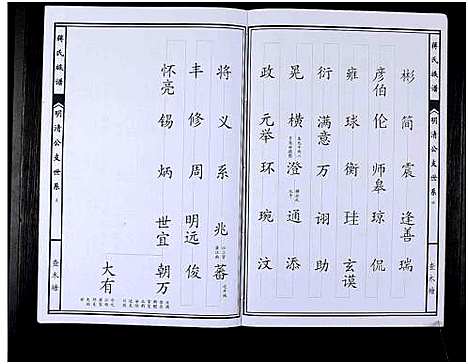 蒋氏族谱
《明清公支世系
彬 简 震 逢善 瑞
彦伯 伦 师皋 琼 侃
雍 球 衡 珪 玄谟
衍 满意 万 诩 助
晃 横 澄 通 添
政 元举 环 琬 汶
将 义 系 兆 蕃
丰 修 周 明远 俊
怀亮 锡 炳 世宜 朝万
大有
蒋氏族谱
《明清公支世系